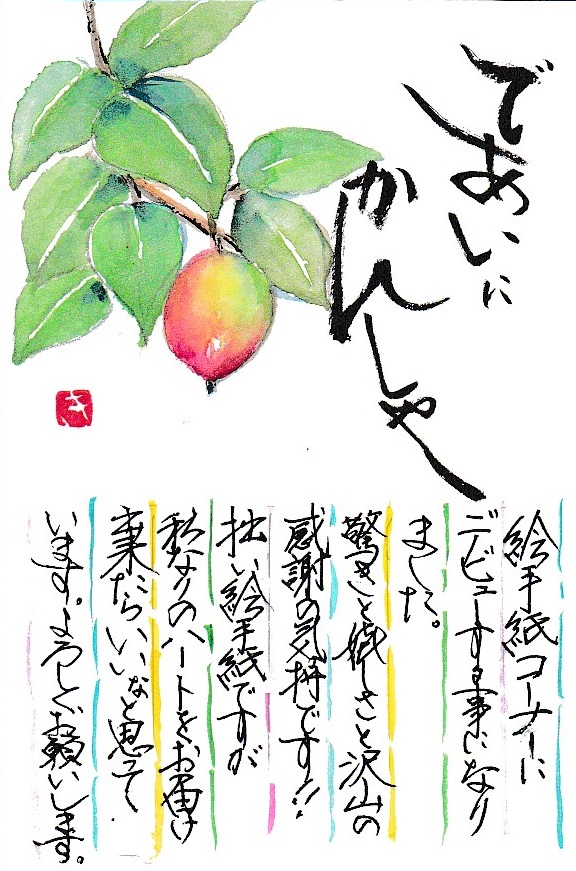 であいに
かんしゃ
絵手紙コーナーに
デビューする事になり
ました。
驚きと嬉しさと沢山の
感謝の気持です!!
拙い絵手紙ですが
私なりのハートをお届け
出来たらいいなと思って
います。よろしくお願いします。
き